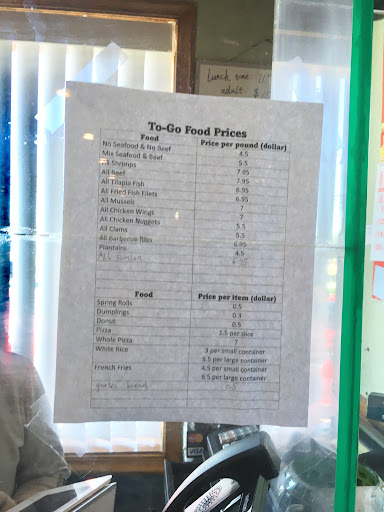 Lunch time 11
adult $
To-Go Food Prices
Food Price per pound (dollar)
No Seafood & No Beef 4.5
Mix Seafood & Beef 5.5
All Shrimps 7.95
All Beef 7.95
All Tilapia Fish 6.95
All Fried Fish Filets 6.95
All Mussels 7
All Chicken Wings 7
All Chicken Nuggets 5.5
All Clams 5.5
All Barbecue Ribs 6.95
Plantains 4.5
All
Food Price per item (dollar)
Spring Rolls 0.5
Dumplings 0.3
Donut 0.5
Pizza 1.5 per slice
Whole Pizza 7
White Rice 3 per small container
5.5 per large container
French Fries 4.5 per small container
6.5 per large container
garlic bread
VISA